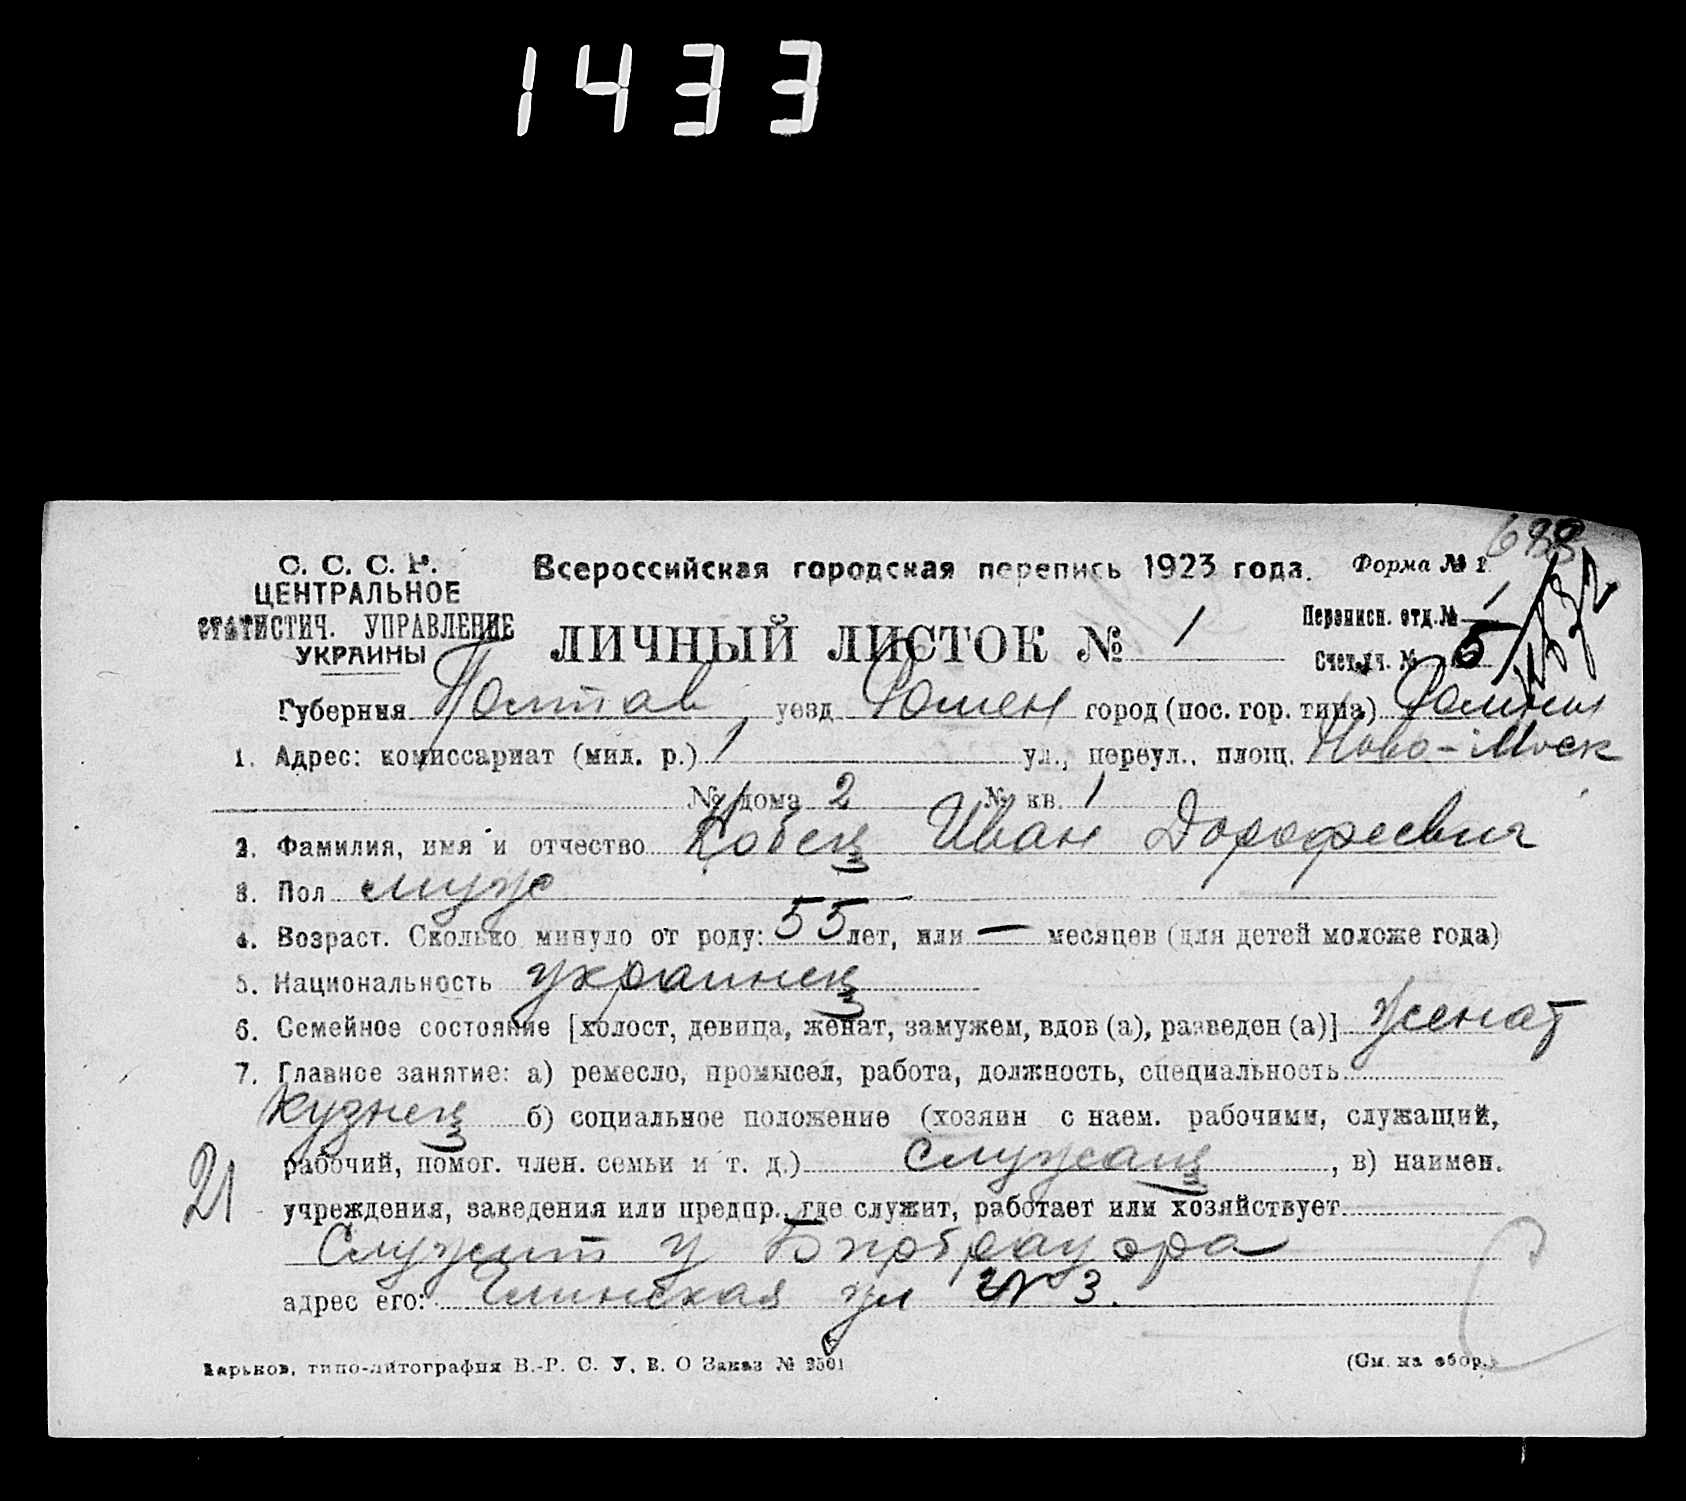 1433
688
С. С. С. Р.
ЦЕНТРАЛЬНОЕ
СТАТИСТИЧ. УПРАВЛЕНИЕ
УКРАИНЫ
Всероссийская городская перепись 1923 года.
Форма № 1.
ЛИЧНЫЙ ЛИСТОК № 1
Переписн. отд. № 1
Счетч. № 5
Губерния Полтав уезд Ромен город (пос. гор. типа) Ромны
1. Адрес: комиссариат (мил. р.) 1 ул., переул., площ. Ново-Моск
№ дома 2 № кв. 1
2. Фамилия, имя и отчество Кобец Иван Дорофеевич
3. Пол муж
4. Возраст. Сколько минуло от роду: 55 лет, или — месяцев (для детей моложе года)
5. Национальность украинец
6. Семейное состояние [холост, девица, женат, замужем, вдов (а), разведен (а)] женат
7. Главное занятие: а) ремесло, промысел, работа, должность, специальность
кузнец б) социальное положение (хозяин с наем. рабочими, служащий,
рабочий, помог. член. семьи и т. д.) Служащ, в) наимен.
21
учреждения, заведения или предпр., где служит, работает или хозяйствует
Служит у
адрес его: ул № 3.
Харьков, типо-литография В.-Р. С. У. В. О Заказ № 2501
(См. на обор.)